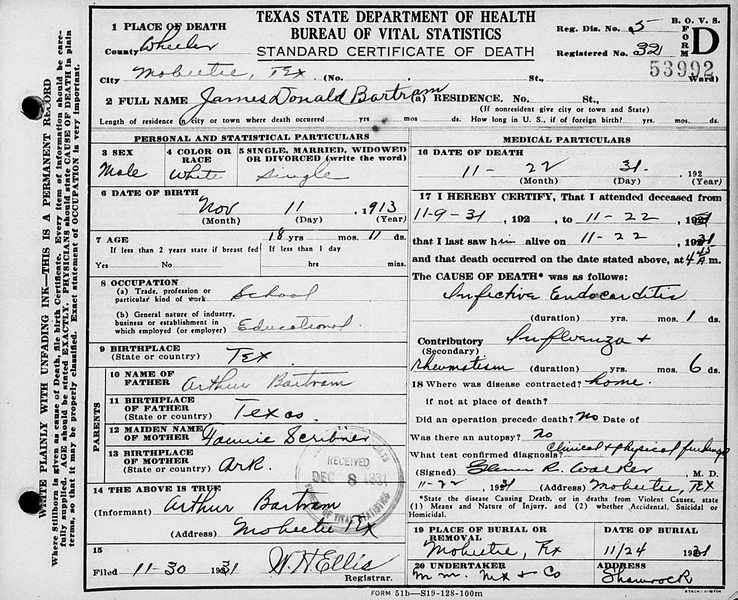 TEXAS STATE DEPARTMENT OF HEALTH
BUREAU OF VITAL STATISTICS
STANDARD CERTIFICATE OF DEATH
B. O. V. S.
FORM D
Reg. Dis. No. 5
Registered No. 32
53992
1 PLACE OF DEATH
County Wheeler
City Mobeetie, Tex (No. St., Ward)
2 FULL NAME James Donald Bartram (a) RESIDENCE. No. St.,
(If nonresident give city or town and State)
Length of residence in city or town where death occurred yrs. mos. ds. How long in U. S., if of foreign birth? yrs. mos. ds.
PERSONAL AND STATISTICAL PARTICULARS
3 SEX
Male
4 COLOR OR RACE
White
5 SINGLE, MARRIED, WIDOWED
OR DIVORCED (write the word)
Single
6 DATE OF BIRTH
Nov 11 1913
(Month) (Day) (Year)
7 AGE 18 yrs mos. 11 ds.
If less than 2 years state if breast fed
If less than 1 day
Yes No hrs min.
8 OCCUPATION
(a) Trade, profession or
particular kind of work. School
(b) General nature of industry,
business or establishment in
which employed (or employer) Educational
9 BIRTHPLACE
(State or country) Tex.
PARENTS
10 NAME OF
FATHER Arthur Bartram
11 BIRTHPLACE
OF FATHER
(State or country) Texas
12 MAIDEN NAME
OF MOTHER Fannie Scribner
13 BIRTHPLACE
OF MOTHER
(State or country) Ark.
14 THE ABOVE IS TRUE
(Informant) Arthur Bartram
(Address) Mobeetie Tex
RECEIVED
DEC 8 1931
15
Filed 11-30 1931 W. H Ellis
Registrar.
MEDICAL PARTICULARS
16 DATE OF DEATH
11- 22 31. 192
(Month) (Day) (Year)
17 I HEREBY CERTIFY, That I attended deceased from
11-9-31, 192 , to 11-22, 1931
that I last saw him alive on 11-22, 1931
and that death occurred on the date stated above, at 4 45 A m.
The CAUSE OF DEATH* was as follows:
Infective Endocarditis
(duration) yrs. mos. 1 ds.
Contributory Influenza +
(Secondary)
rheumatism (duration) yrs. mos. 6 ds.
18 Where was disease contracted? home.
If not at place of death?
Did an operation precede death? No Date of
Was there an autopsy? No
What test confirmed diagnosis? Clinical + physical findings
(Signed) Glenn R. Walker, M. D.
11-22 1931 (Address) Mobeetie, Tex
*State the disease Causing Death, or in deaths from Violent Causes, state
(1) Means and Nature of Injury, and (2) whether Accidental, Suicidal or
Homicidal.
19 PLACE OF BURIAL OR
REMOVAL
Mobeetie, Tex
DATE OF BURIAL
11/24 1931
20 UNDERTAKER
ADDRESS
Shamrock
FORM 51b—S19-128-100m
WRITE PLAINLY WITH UNFADING INK—THIS IS A PERMANENT RECORD
Where stillborn is given as cause of Death, file birth Certificate. Every item of information should be care-
fully supplied. AGE should be stated EXACTLY. PHYSICIANS should state CAUSE OF DEATH in plain
terms, so that it may be properly classified. Exact statement of OCCUPATION is very important.